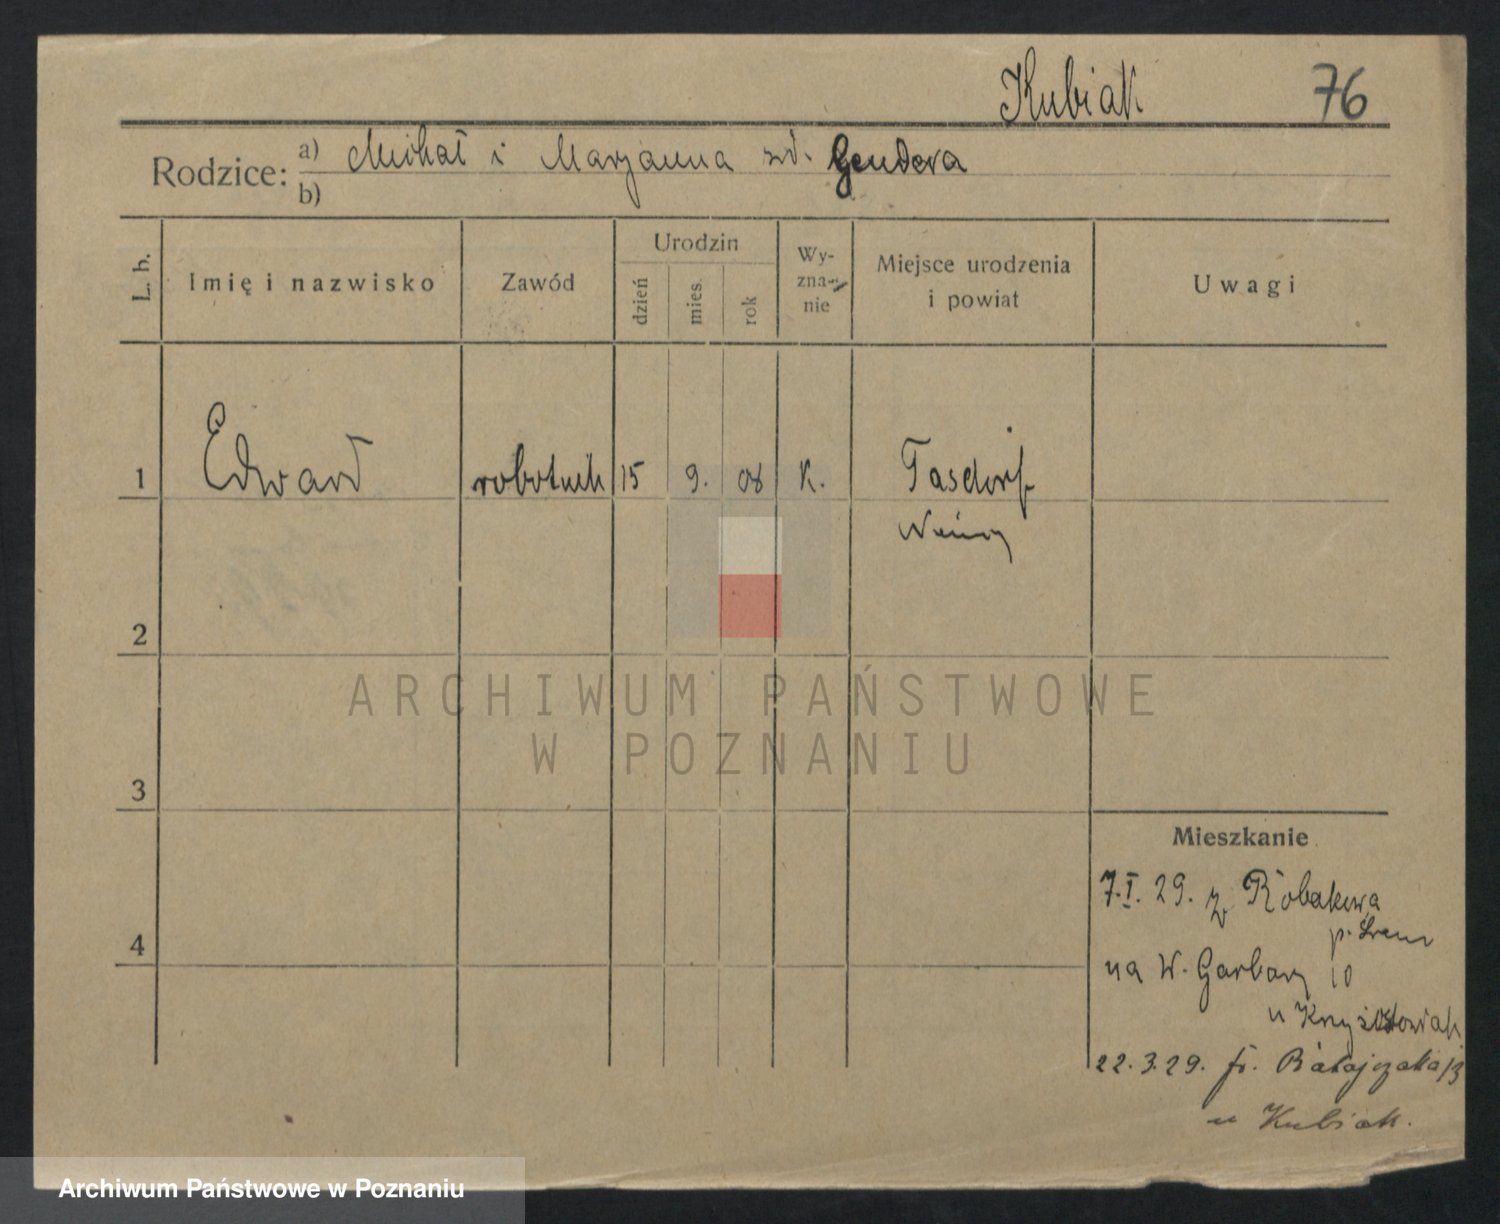 Kubiak 76
Rodzice: a) Michał i Marjanna zd. Gendera
b)
L. b. Imię i nazwisko Zawód Urodzin dzień mies. rok Wy-zna-nie Miejsce urodzenia i powiat Uwagi
1 Edward robotnik 15 9. 08 K. Tasdorf
Niemcy
2
ARCHIWUM PAŃSTWOWE
W POZNANIU
3
Mieszkanie
7.I.29. z Robakowa
p. Śrem
4
na W. Garbary 10
u
22.3.29. fr. Ratajczaka 13
u Kubiak.
Archiwum Państwowe w Poznaniu